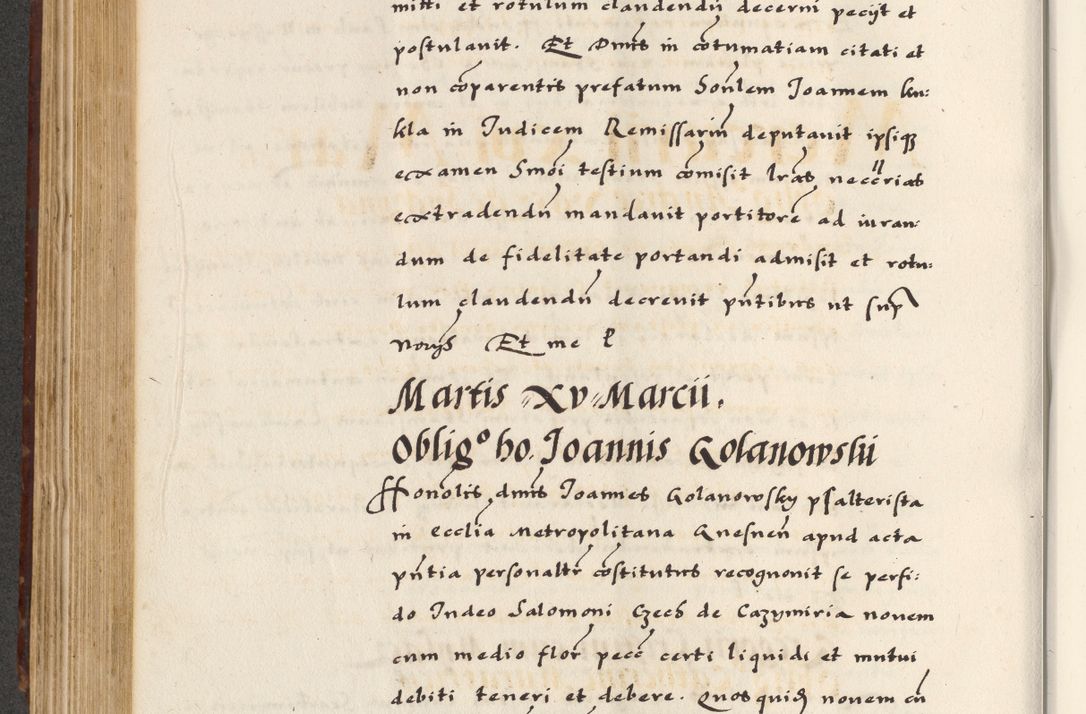 mitti et rotulum claudendū decerni pecijt et
postulauit. Et Dnūs in cōtumatiam citati et
non cōparentis prefatum Honlem Joannem ku:
kla in Judicem Remissariū deputauit ipsiqȝ
examen Smōi testium cōmisit lrās necc̄rias
extradendū mandauit portitorē ad iuran:
dum de fidelitate portandi admisit et rotu:
lum claudendū decreuit pn̄tibus ut sup
Norijs Et me
Martis xv Marcii.
Obligº ho. Joannis Golanowskii
Honōlis dnūs Joannes Golanowsky psalterista
in ecclīa Metropolitana Gnesnen̄ apud acta
pn̄tia personalr̄ cōstitutus recognouit se perfi:
do Judeo Salomoni Czech de Cazymiria nouem
cum medio flor̄ pecc̄ certi liquidi et mutui
debiti teneri et debere. Quos quidȝ nouem cū